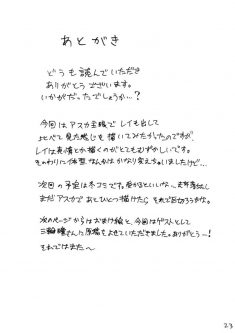 あとがき
どうも読んでいただき
ありがとうございます。
いかがだったでしょうか…?
今回はアスカ主役で レイも出して
比べて見た感じも 描いてみたかったのですが、
レイは表情とか描くのがとてもむずかしいです。
そのわりに体型なんかはかなり変えちゃいましたけど…
次回の予定は冬コミです。受かるといいな〜
まだアスカで あとひとつ描けたら それで区切りかな。
次のページからはおまけ絵と、今回はゲストとして
三輪 さんに原稿をよせていただきました。ありがとう〜!
それではまた〜
23